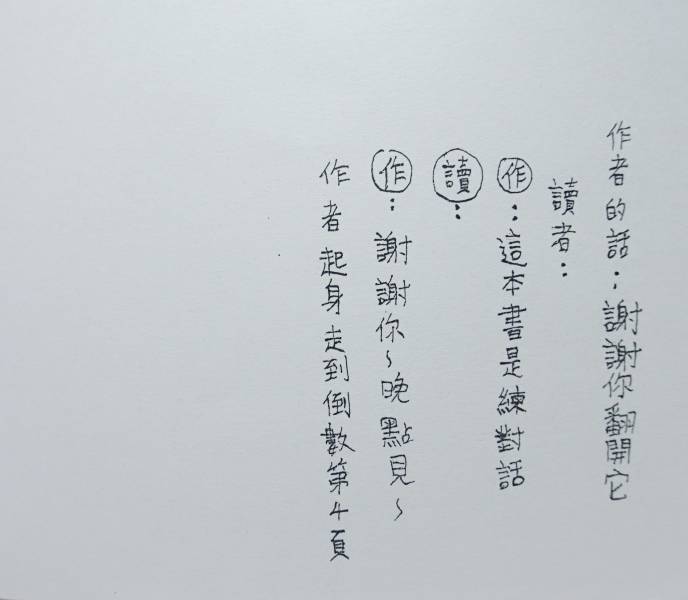 作者的話：謝謝你翻開它
讀者：
作：這本書是練對話
讀：
作：謝謝你～晚點見～
作者起身走到倒數第4頁